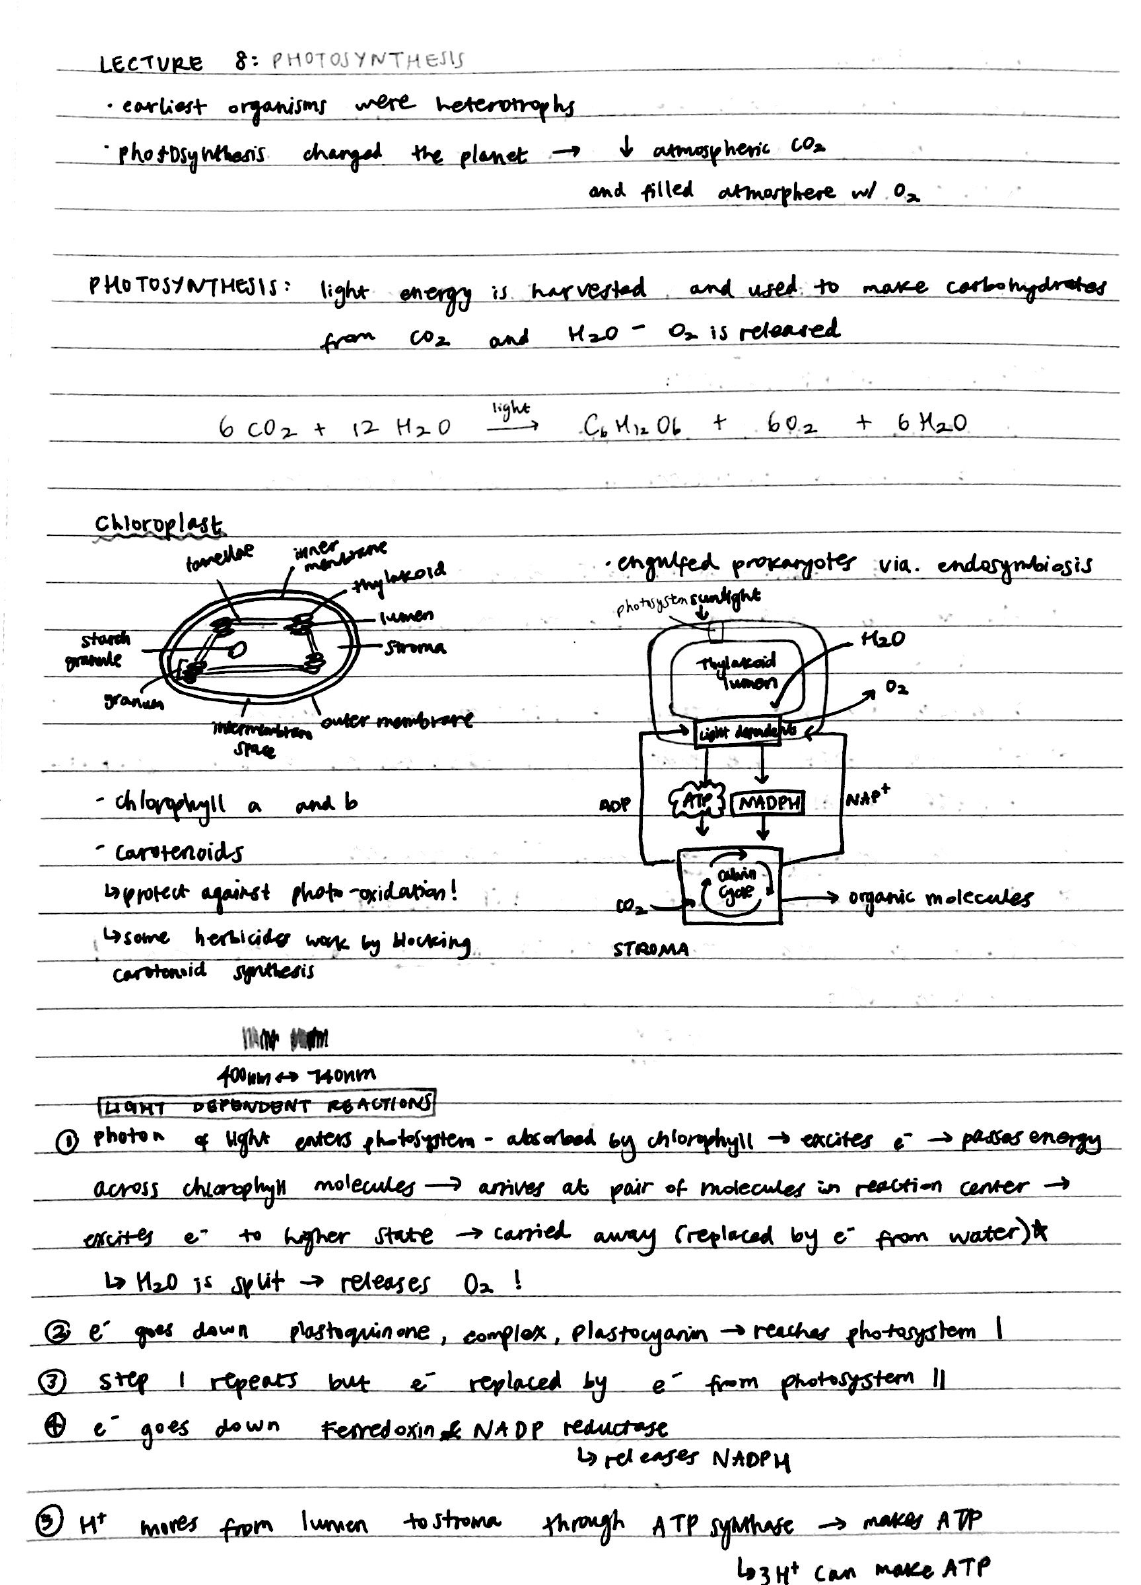 LECTURE 8: PHOTOSYNTHESIS
· earliest organisms were heterotrophs
· photosynthesis changed the planet → ↓ atmospheric CO₂
and filled atmosphere w/ O₂
PHOTOSYNTHESIS: light energy is harvested and used to make carbohydrates
from CO₂ and H₂O - O₂ is released
6 CO₂ + 12 H₂O light → C₆H₁₂O₆ + 6O₂ + 6H₂O
Chloroplast
lamellae
inner membrane
thylakoid
lumen
stroma
starch granule
granum
intermembrane space
outer membrane
· engulfed prokaryotes via. endosymbiosis
photosystem sunlight
H₂O
thylakoid lumen
O₂
light dependents
ADP
ATP
NADPH
NAP⁺
Calvin cycle
CO₂
→ organic molecules
STROMA
- chlorophyll a and b
- carotenoids
↳ protect against photo-oxidation!
↳ some herbicides work by blocking
carotonoid synthesis
400nm ↔ 740nm
LIGHT DEPENDENT REACTIONS
① photon of light enters photosystem - absorbed by chlorophyll → excites e⁻ → passes energy
across chlorophyll molecules → arrives at pair of molecules in reaction center →
excites e⁻ to higher state → carried away (replaced by e⁻ from water)★
↳ H₂O is split → releases O₂ !
② e⁻ goes down plastoquinone, complex, plastocyanin → reaches photosystem I
③ step 1 repeats but e⁻ replaced by e⁻ from photosystem II
④ e⁻ goes down Ferredoxin & NADP reductase
↳ releases NADPH
⑤ H⁺ moves from lumen to stroma through ATP synthase → makes ATP
↳ 3 H⁺ can make ATP